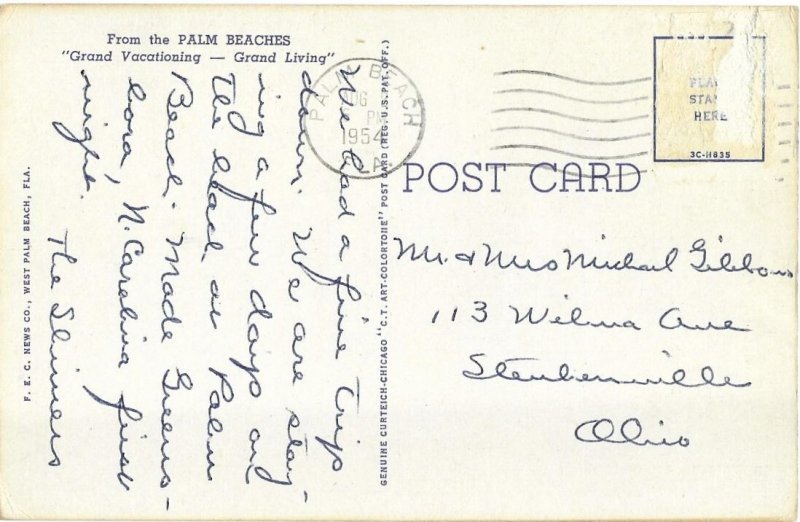 From the PALM BEACHES
"Grand Vacationing — Grand Living"
We had a fine trip
down. We are stay-
ing a few days on
the beach at Palm
Beach. Made Greens-
boro, N. Carolina first
night.
The Shiners
F. E. C. NEWS CO., WEST PALM BEACH, FLA.
GENUINE CURTEICH-CHICAGO "C.T. ART-COLORTONE" POST CARD (REG. U.S. PAT. OFF.)
PALM BEACH
PM
1954
POST CARD
STA
HERE
3C-H835
Mr. & Mrs Michael Gibbons
113 Wilma Ave
Steubenville
Ohio